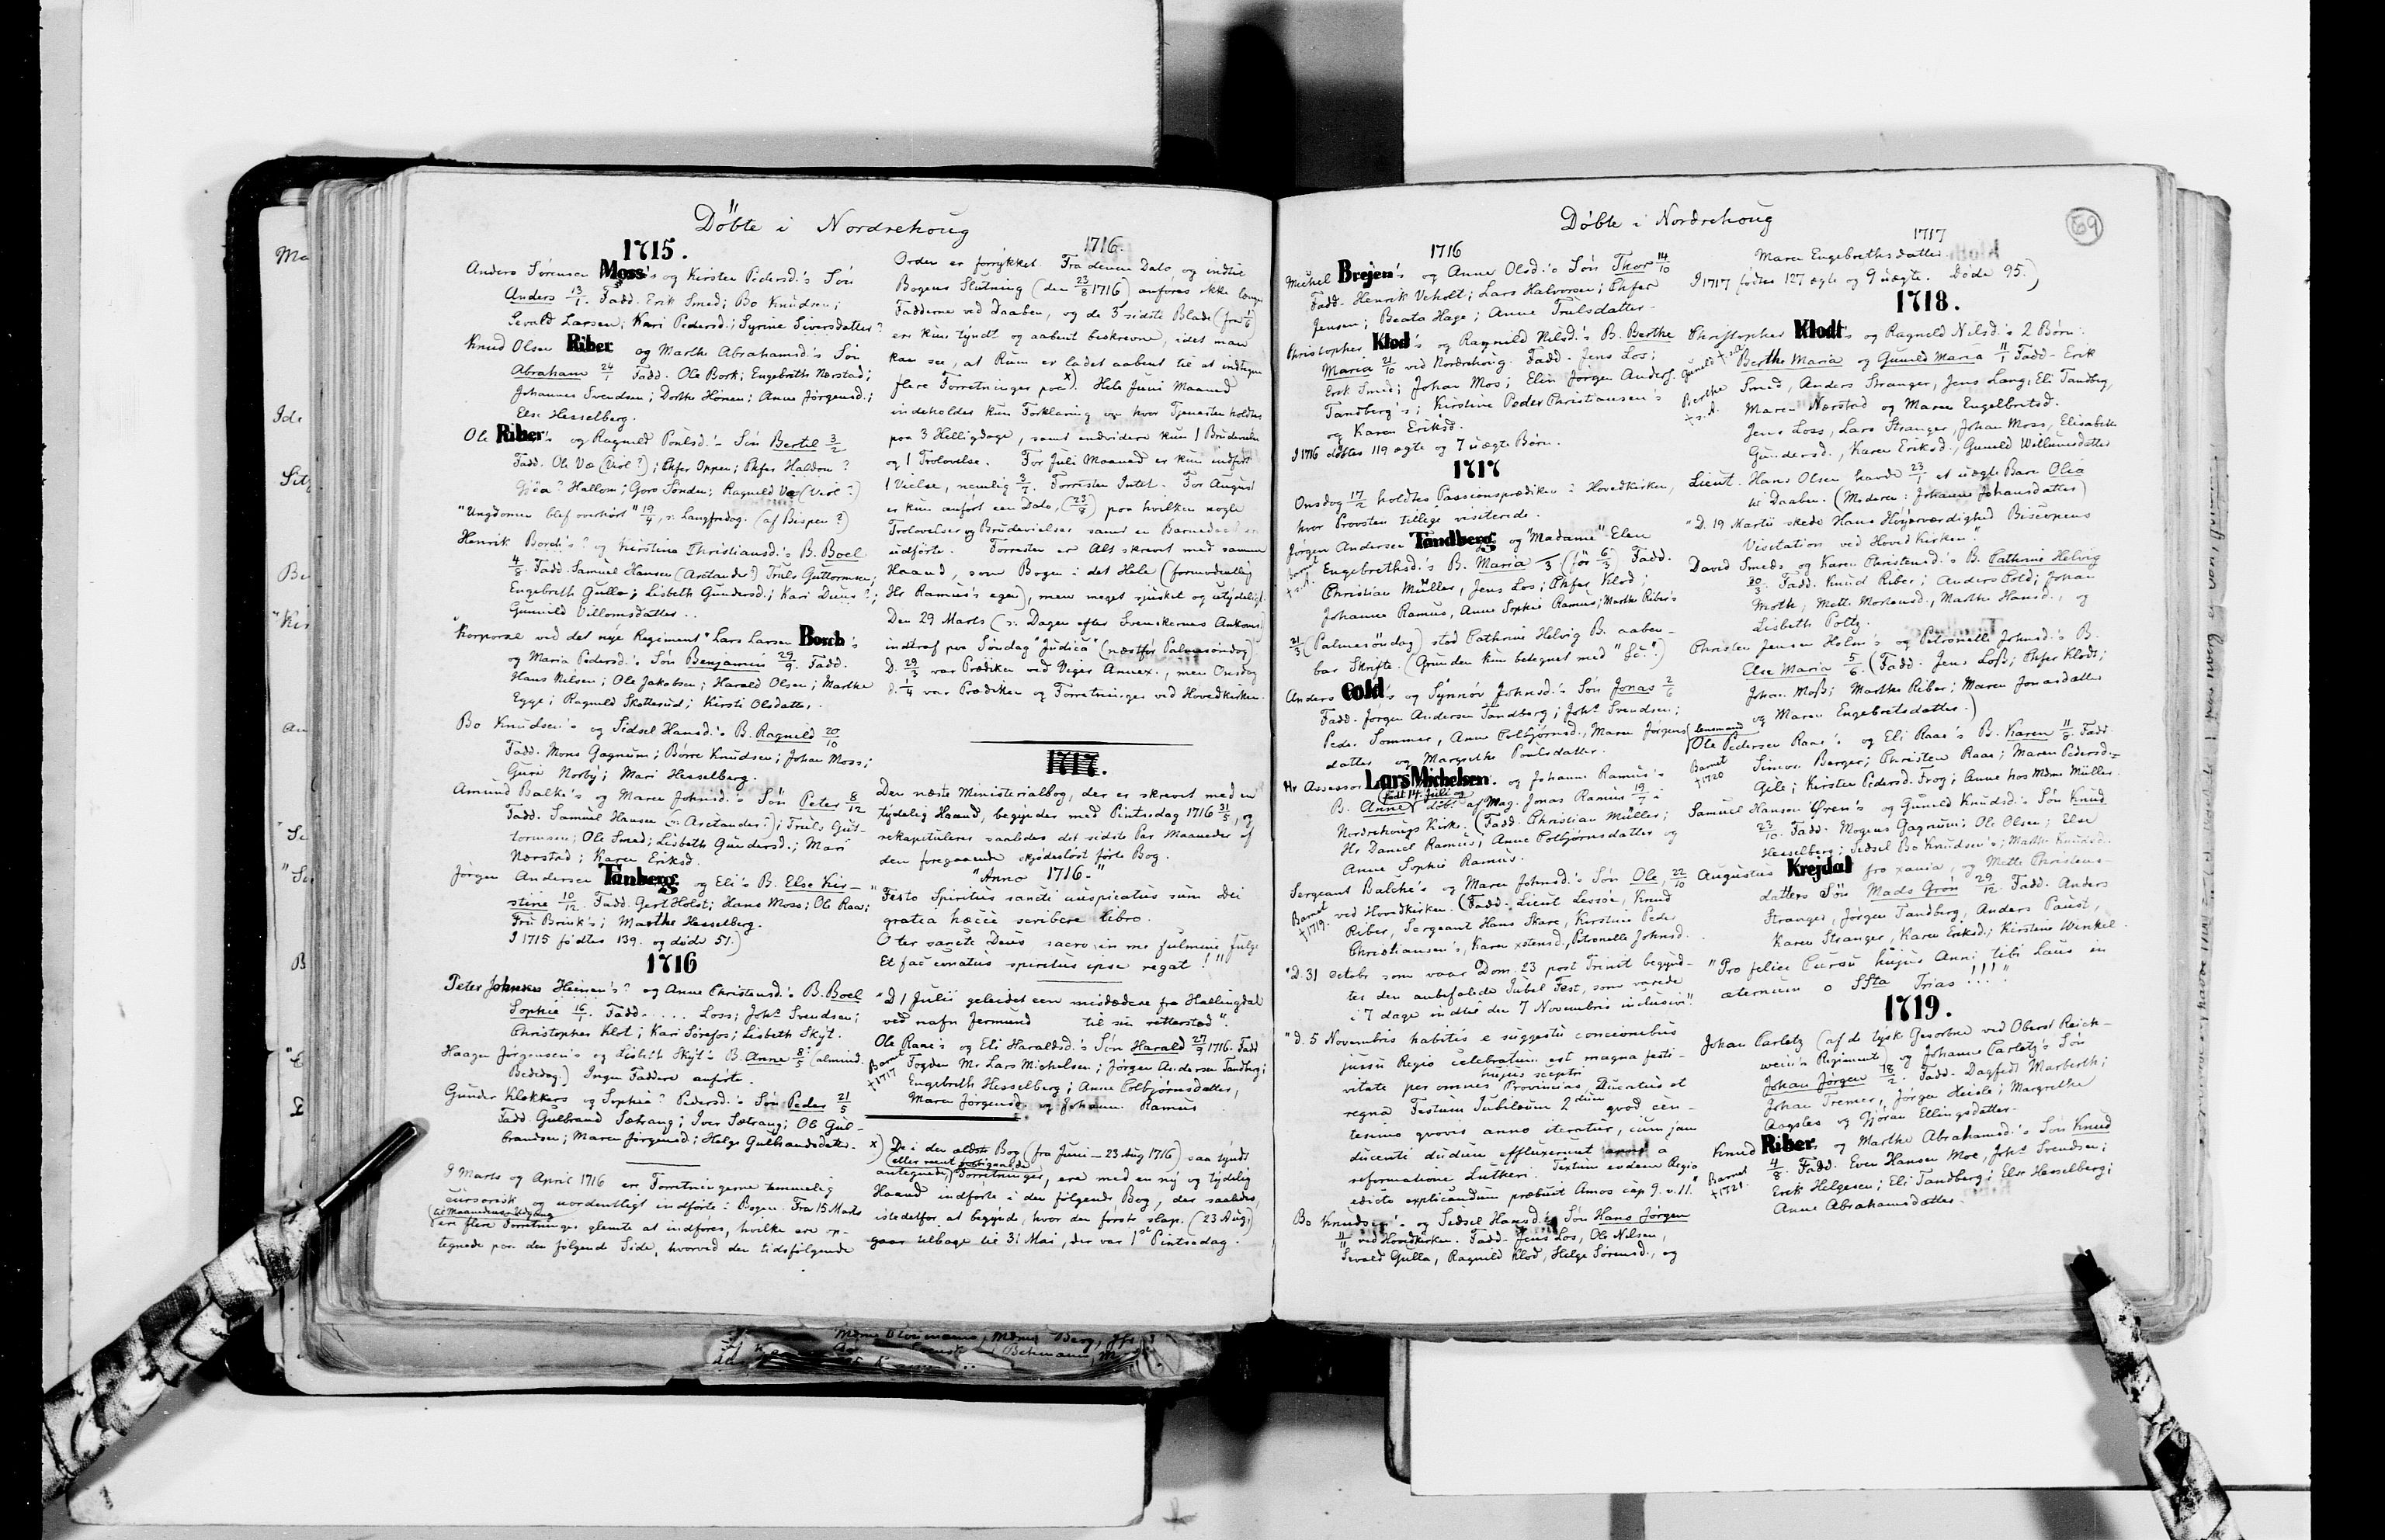 Döbte i Nordrehoug
1715.
Anders Sörensen Moss's og Kirsten Pedersd.'s Sön
Anders 13/1. Fadd. Erik Smed; Bo Knudsen;
Sevald Larsen; Kari Pedersd.; Syrine Siversdatter?
Knud Olsen Riber og Marthe Abrahamsd.'s Sön
Abraham 24/1 Fadd. Ole Bork; Engebreth Nærstad;
Johannes Svendsen; Dorthe Hönen; Anne Jörgensd.;
Else Hesselberg.
Ole Riber's og Ragnild Poulsd.'s Sön Bertel 3/2
Fadd. Ole Væ (Viol?); Chfer Oppen; Chfer Haldom?
Hallom; Goro Sönder; Ragnild Væ (Viol?)
"Ungdomen blef overhört" 19/4, ɔ: Langfredag. (af Bispen?)
Henrik Borch's? og Kirstine Christiansd.'s B. Boel
4/8. Fadd. Samuel Hansen Truls Guttormsen;
Engebreth Gulle; Lisbeth Gundersd.; Kari Duns?;
Gunnild Villomsdatter.
"Korporal ved det nye Regiment" Lars Larsen Borch's
og Maria Pedersd.'s Sön Benjamin 29/9. Fadd.
Hans Nilsen; Ole Jakobsen; Harald Olsen; Marthe
Egge; Ragnild Skotterud; Kirsti Olsdatter.
Bo Knudsen's og Sidsel Hansd.'s B. Ragnild 20/10
Fadd. Mons Gagnum; Börre Knudsen; Johan Moss;
Guri Norby; Mari Hesselberg.
Amund Balke's og Maren Johnsd.'s Sön Peter 8/12
Fadd. Samuel Hansen Truls Gut-
tormsen; Ole Smed; Lisbeth Gundersd.; Mari
Nærstad; Karen Eriksd.
Jörgen Andersen Tanberg og Eli's B. Else Kir-
stine 10/12. Fadd. Gert Holst; Hans Moss; Ole Raae;
Fru Brink's; Marthe Hesselberg.
I 1715 födtes 139. og döde 51.)
1716
Peter Johnsen Heinen's? og Anne Christensd.'s B. Boel
Sophie 16/1. Fadd. .... Loss; Johs Svendsen;
Christopher Klot; Kari Sörefos; Lisbeth Skyt.
Haagen Jörgensen's og Lisbeth Skyt's B. Anne 8/5 (almind.
Bededag.) Ingen Faddere anförte.
Gunder Klokkers og Sophie? Pedersd.'s Sön Peder 21/5
Fadd. Gulbrand Sætrang; Iver Sætrang; Ole Gul-
brandsen; Maren Jörgensd.; Helge Gulbrandsdatter.
I Marts og April 1716 ere Forretningerne temmelig
cursorisk og uordentligt indförte i Bogen. Fra 15 Marts
(til Maanedens Udgang
ere flere Forretninger glemte at indföres, hvilke ere op-
tegnede paa den fölgende Side, hvorved den tidsfölgende
1716.
Orden er forrykket. Fra denne Dato og indtil
Bogens Slutning (den 23/8 1716) anföres ikke længer
Fadderne ved Daaben, og de 3 sidste Blade (fra 1/6)
ere kun tyndt og aabent beskrevne, idet man
kan see, at Rum er ladet aabent til at indtegne
flere Forretninger paa x). Hele Juni Maaned
indeholder kun Forklaring om hvor Tjenesten holdtes
paa 3 Helligdage, samt endvidere kun 1 Brudevielse
og 1 Trolovelse. For Juli Maaned er kun indfört
1 Vielse, nemlig 3/7. Forresten Intet. For August
er kun anfört een Dato, (23/8) paa hvilken nogle
Trolovelser og Brudevielser samt en Barnedaab er
indförte. Forresten er Alt skrevet med samme
Haand, som Bogen i det Hele (formodentlig
Hr Ramus's egen), men meget sjusket og utydeligt.
Den 29 Marts (ɔ: Dagen efter Svenskernes Ankomst)
indtraf paa Söndag "Judica" (næstför Palmesöndag).
D. 29/3 var Prædiken ved Viger Annex., men Onsdag
d. 1/4 var Prædiken og Forretninger ved Hovedkirken.
1717.
Den næste Ministerialbog, der er skrevet med en
tydelig Haand, begyndes med Pintsdag 1716 31/5, og
rekapitulerer saaledes det sidste Par Maaneder af
den foregaaende skjödeslöst förte Bog.
"Anno 1716."
"Festo Spiritus sancti auspicatus sum Dei
gratia hæcce scribere libro.
O ter sancte Deus sacro in me fulmine fulge
Et fac conatus spiritus ipse regat!"
"D 1 Julii geleidet een misdædere fra Hallingdal
ved nafn Jermund til sin rettersted".
Ole Raae's og Eli Haraldsd.'s Sön Harald 27/9 1716. Fadd
Barnet †1717
Fogden Mr Lars Michelsen; Jörgen Andersen Tandberg;
Engebreth Hesselberg; Anne Colbjörnsdatter,
Maren Jörgensd. og Johanne Ramus
x) De i den ældste Bog (fra Juni – 23 Aug 1716) saa tyndt
(eller rent forbigaaede
antegnede) Forretninger, ere med en ny og tydelig
Haand indförte i den fölgende Bog, der saaledes
istedetfor at begynde, hvor den förste slap. (23 Aug.)
gaar tilbage til 31 Mai, der var 1ste Pintsedag.
Döbte i Nordrehoug
69
1716
Michel Brejen's og Anne Olsd.'s Sön Thor 14/10
Fadd. Henrik Veholt; Lars Halvorsen; Chfer
Jensen; Beata Hage; Anne Trulsdatter.
Christopher Klod's og Ragnild Nilsd.'s B. Berthe
Maria 21/10 ved Nordrehoug. Fadd. Jens Los;
Erik Smed; Johan Mos; Elin Jörgen Anders.
Tandberg's; Kirstine Peder Christiansen's
og Karen Eriksd.
I 1716 döbtes 119 ægte og 7 uægte Börn.
1717
Onsdag 17/2 holdtes Passionsprædiken i Hovedkirken,
hvor Provsten tillige visiterede.
Jörgen Andersen Tandberg og "Madame" Elen
Barnet † s.d.
Engebrethsd.'s B. Maria /3 (för 6/3) Fadd.
Christian Müller, Jens Los; Chfer Klod;
Johanne Ramus, Anne Sophie Ramus; Marthe Riber's
21/3 (Palmesöndag) stod Cathrine Helvig B. aaben-
bar Skrifte. (Grunden kun betegnet med
Anders Cold's og Synnöv Johnsd.'s Sön Jonas 2/6
Fadd. Jörgen Andersen Tandberg; Johs Svendsen;
Peder Sommer, Anne Colbjörnsd., Maren Jörgens
datter og Margrethe Poulsdatter.
Hr Assessor Lars Michelsen og Johanne Ramus's
(födt 14 Juli og
B. Anne döbt af Mag. Jonas Ramus 19/7 i
Nordrehougs Kirke. (Fadd. Christian Müller;
Hr Daniel Ramus; Anne Colbjörnsdatter og
Anne Sophie Ramus.
Sergeant Balche's og Maren Johnsd.'s Sön Ole, 22/10
Barnet †1719.
ved Hovedkirken. (Fadd. Lieut Lessöe, Knud
Riber, Sergeant Hans Skare, Kirstine Peder
Christiansen's, Karen xstensd., Petronelle Johnsd.
"D. 31 octobr som vaar Dom. 23 post Trinit begynd-
tes den anbefalede Jubel Fest, som varede
i 7 dage indtil den 7 Novembris inclusive".
"d. 5 Novembris habitis e suggestu concionibus
jussu Regio celebratum est magna festi-
hujus sceptri
vitate per omnes Provincias, Ducatus et
regna Festum Jubilæum 2dum quod cen-
tesimo quovis anno iteratur, cum jam
ducenti dudum effluxerunt anni a
reformatione Lutheri. Textum eodem Regio
edicto explicandum præbuit Amos cap 9. v. 11."
Bo Knudsen's og Sidsel Hansd.'s Sön Hans Jörgen
11/11 ved Hovedkirken. Fadd. Jens Los, Ole Nilsen,
Sevald Gulla, Ragnild Klod, Helge Sörensd., og
1717
Maren Engebrethsdatter.
I 1717 födtes 127 ægte og 9 uægte. Döde 95.)
1718.
Christopher Klodt's og Ragnild Nilsd.'s 2 Börn:
Berthe Maria og Gunild Maria 11/1 Fadd. Erik
Smed, Anders Stranger, Jens Lang, Eli Tandberg
Berthe † s.d.
Maren Nærstad og Maren Engelbretsd.
Jens Loss, Lars Stranger, Johan Moss, Elisabeth
Gundersd., Karen Eriksd., Gunild Willumsdatter
Lieut. Hans Olsen havde 23/1 et uægte Barn Olia
til Daaben. (Moderen: Johanne Johansdatter)
"D. 19 Martii skede Hans Höyærværdighed Biscopens
Visitation ved Hoved Kirken."
David Smeds og Karen Christensd.'s B. Cathrine Helvig
20/3. Fadd. Knud Riber; Anders Cold; Johan
Moth, Mette Mortensd., Marthe Hansd., og
Lisbeth Poltz.
Christen Jensen Holm's og Petronelle Johnsd.'s B.
Else Maria 5/6. (Fadd. Jens Loß; Chfer Klodt;
Johan Moß; Marthe Riber; Maren Jonasdatter
og Maren Engebretsdatter.)
(Lensmand
Ole Pedersen Raae's og Eli Raae's B. Karen 11/8. Fadd.
Barnet †1720
Simen Berger; Christen Raae; Maren Pedersd.
Gile; Kirsten Pedersd. Frog; Anne hos Mdme Müller.
Samuel Hansen Ören's og Gunild Knudsd.'s Sön Knud
23/10. Fadd. Mogens Gagnum; Ole Olsen; Else
Hesselberg; Sidsel Bo Knudsen's; Malthe Knudsd.
Augustus Krejdal fra xania, og Mette Christens-
datters Sön Mads Grön 29/12. Fadd. Anders
Stranger, Jörgen Tandberg, Anders Paust,
Karen Stranger, Karen Eriksd.; Kirstine Winkel.
"Pro felice Cursu hujus Anni tibi Laus in
æternum o SSta Trias!!!"
1719.
Johan Carletz (af de tysk Gevorbne ved Oberst Reich-
wein's Regiment) og Johanne Carletz's Sön
Johan Jörgen 18/2. Fadd. Dagfedt Marberth;
Johan Tremer, Jörgen Heisle; Margrethe
Aagstes og Gjöran Ellingsdatter.
Knud Riber og Marthe Abrahamsd.'s Sön Knud
Barnet †1721
4/8. Fadd. Even Hansen Moe, Johs Svendsen;
Erik Helgesen; Eli Tandberg; Else Hesselberg;
Anne Abrahamsdatter.